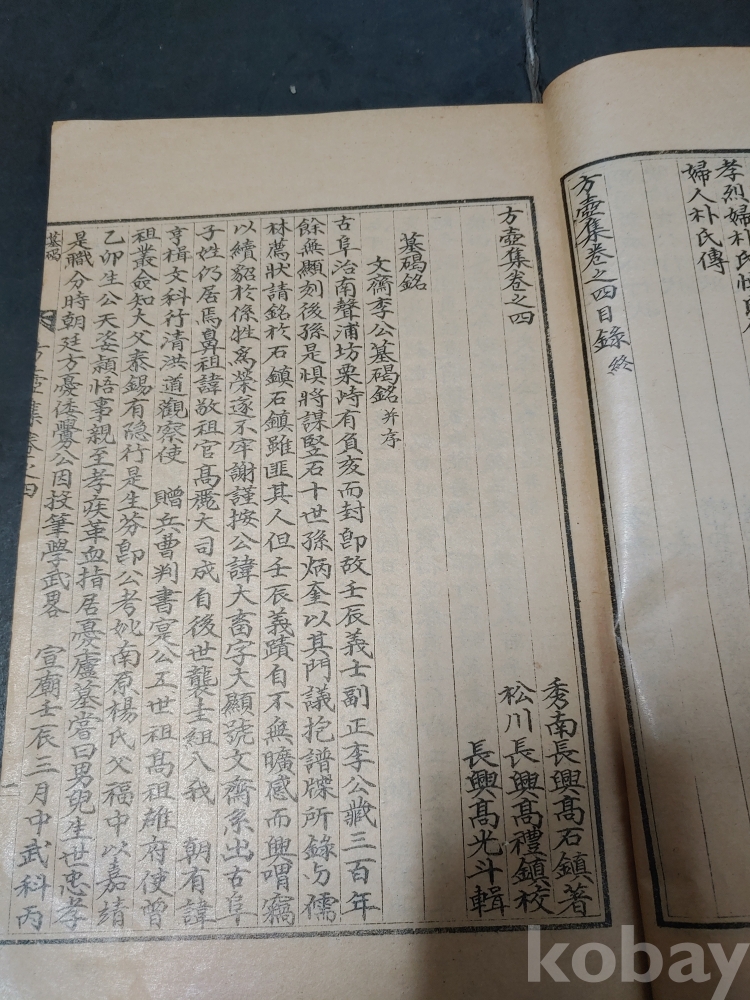 婦人朴氏傳
方壺集卷之四目錄 終
方壺集卷之四
秀南長興高石鎮著
松川長興高禮鎮校
長興高光斗輯
墓碣銘
文齋李公墓碣銘 并序
古阜治南聲浦坊栗峙有負亥而封卽故壬辰義士副正李公藏三百年
餘無顯刻後孫是惧將謀竪石十世孫炳奎以其門議抱譜牒所錄与儒
林薦狀請銘於石鎮石鎮雖匪其人但壬辰義蹟自不無曠感而興喟竊
以續貂於條牲爲榮遂不牢謝謹按公諱大畜字大顯號文齋系出古阜
子姓仍居焉鼻祖諱敬祖官高麗大司成自後世襲圭組入我 朝有諱
亨楫文科行清洪道觀察使 贈兵曹判書寔公五世祖高祖雄府使曾
祖叢僉知大父泰錫有隐行是生芬卽公考妣南原楊氏父福中以嘉靖
乙卯生公天姿穎悟事親至孝疾革血指居憂廬墓嘗曰男兒生世忠孝
是職分時朝廷方憂倭釁公因投筆學武畧 宣廟壬辰三月中武科丙
墓碣
方壺集卷之四
kobay